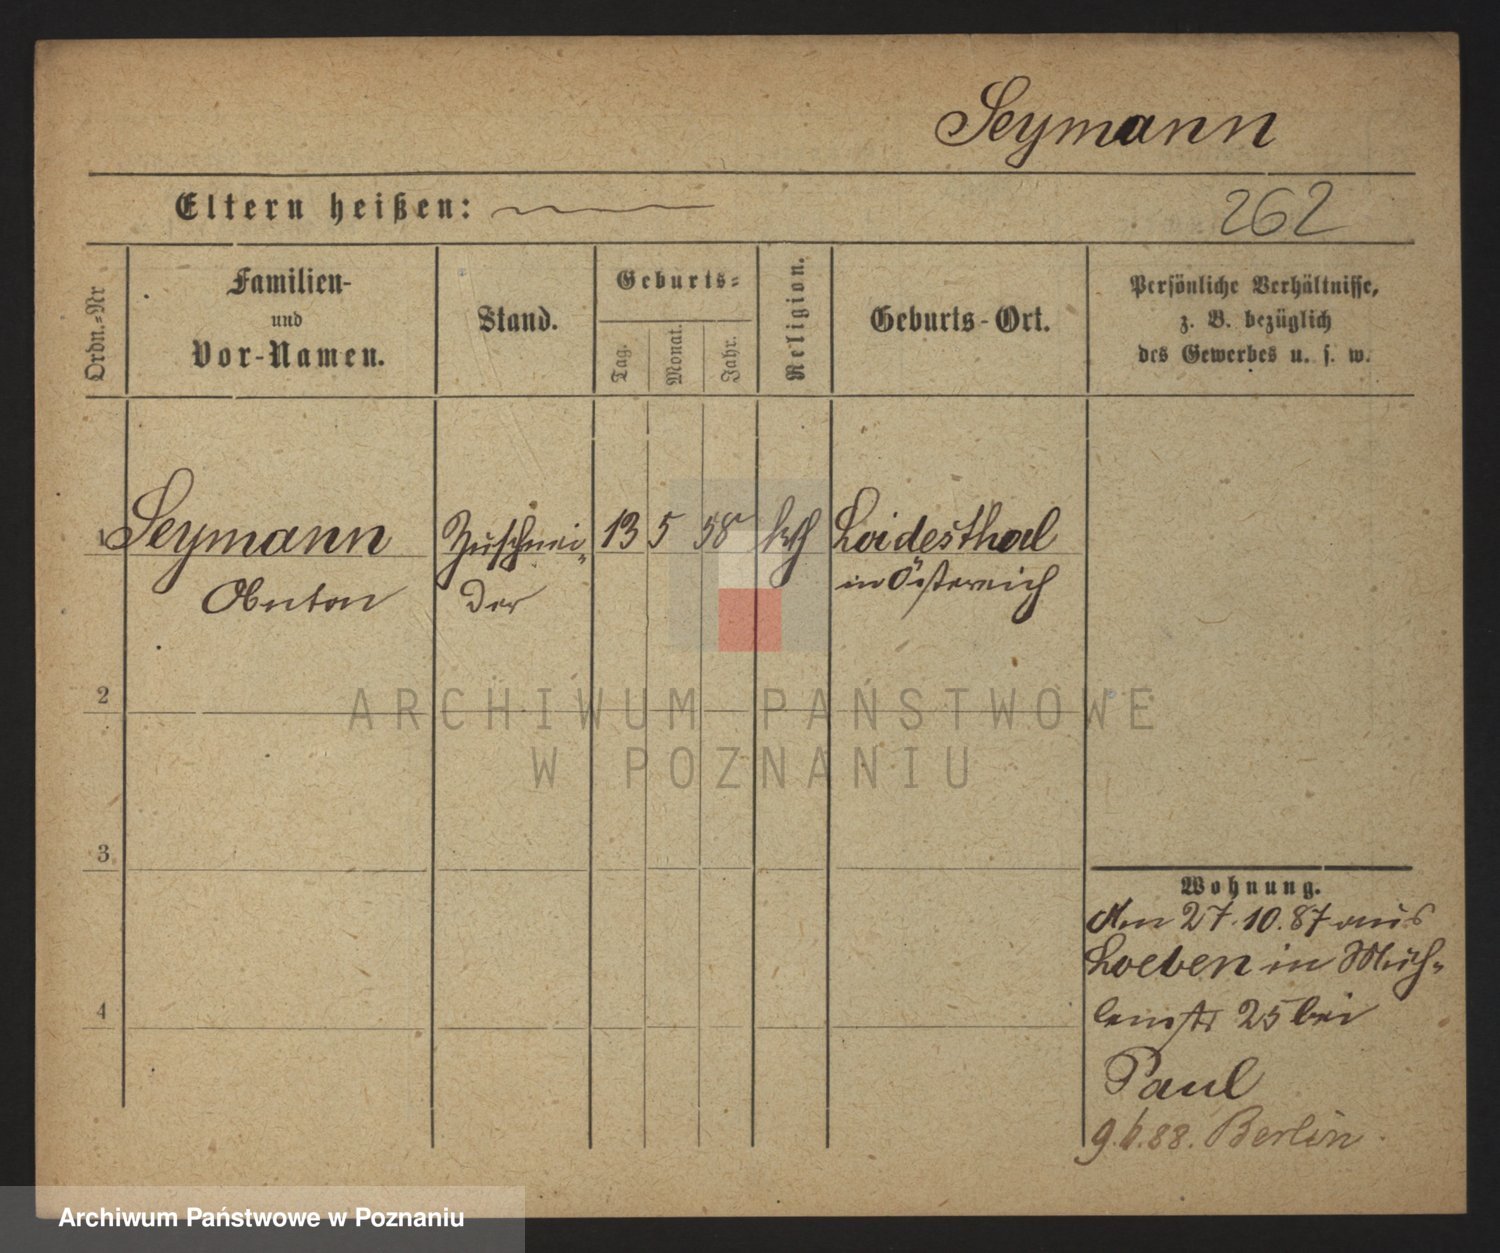 Seymann
Eltern heißen:
262
Ordn.-Nr
Familien-
und
Vor-Namen.
Stand.
Geburts-
Tag.
Monat.
Jahr.
Religion.
Geburts-Ort.
Persönliche Verhältnisse,
z. B. bezüglich
des Gewerbes u. s. w.
1 Seymann Zuschnei- 13 5 58 kth Loidesthal
Anton der in Österreich
2
ARCHIWUM PAŃSTWOWE
W POZNANIU
3
Wohnung.
Am 27.10.87 aus
Loeben in Müh-
lenstr 25 bei
4
Paul
9.6.88. Berlin.
Archiwum Państwowe w Poznaniu